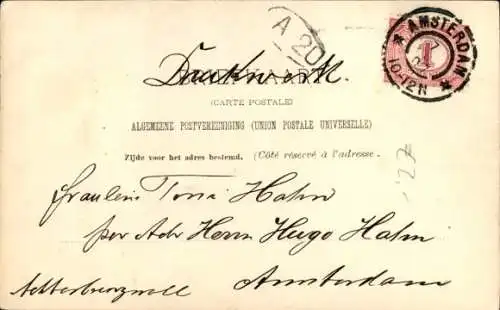 A 20
AMSTERDAM
10-12N
1
Drukwerk.
(CARTE POSTALE)
ALGEMEENE POSTVEREENIGING (UNION POSTALE UNIVERSELLE)
Zijde voor het adres bestemd. (Côté réservé à l'adresse.
'27
Fräulein Toni Hahn
per Adr Herrn Hugo Hahn
Amsterdam